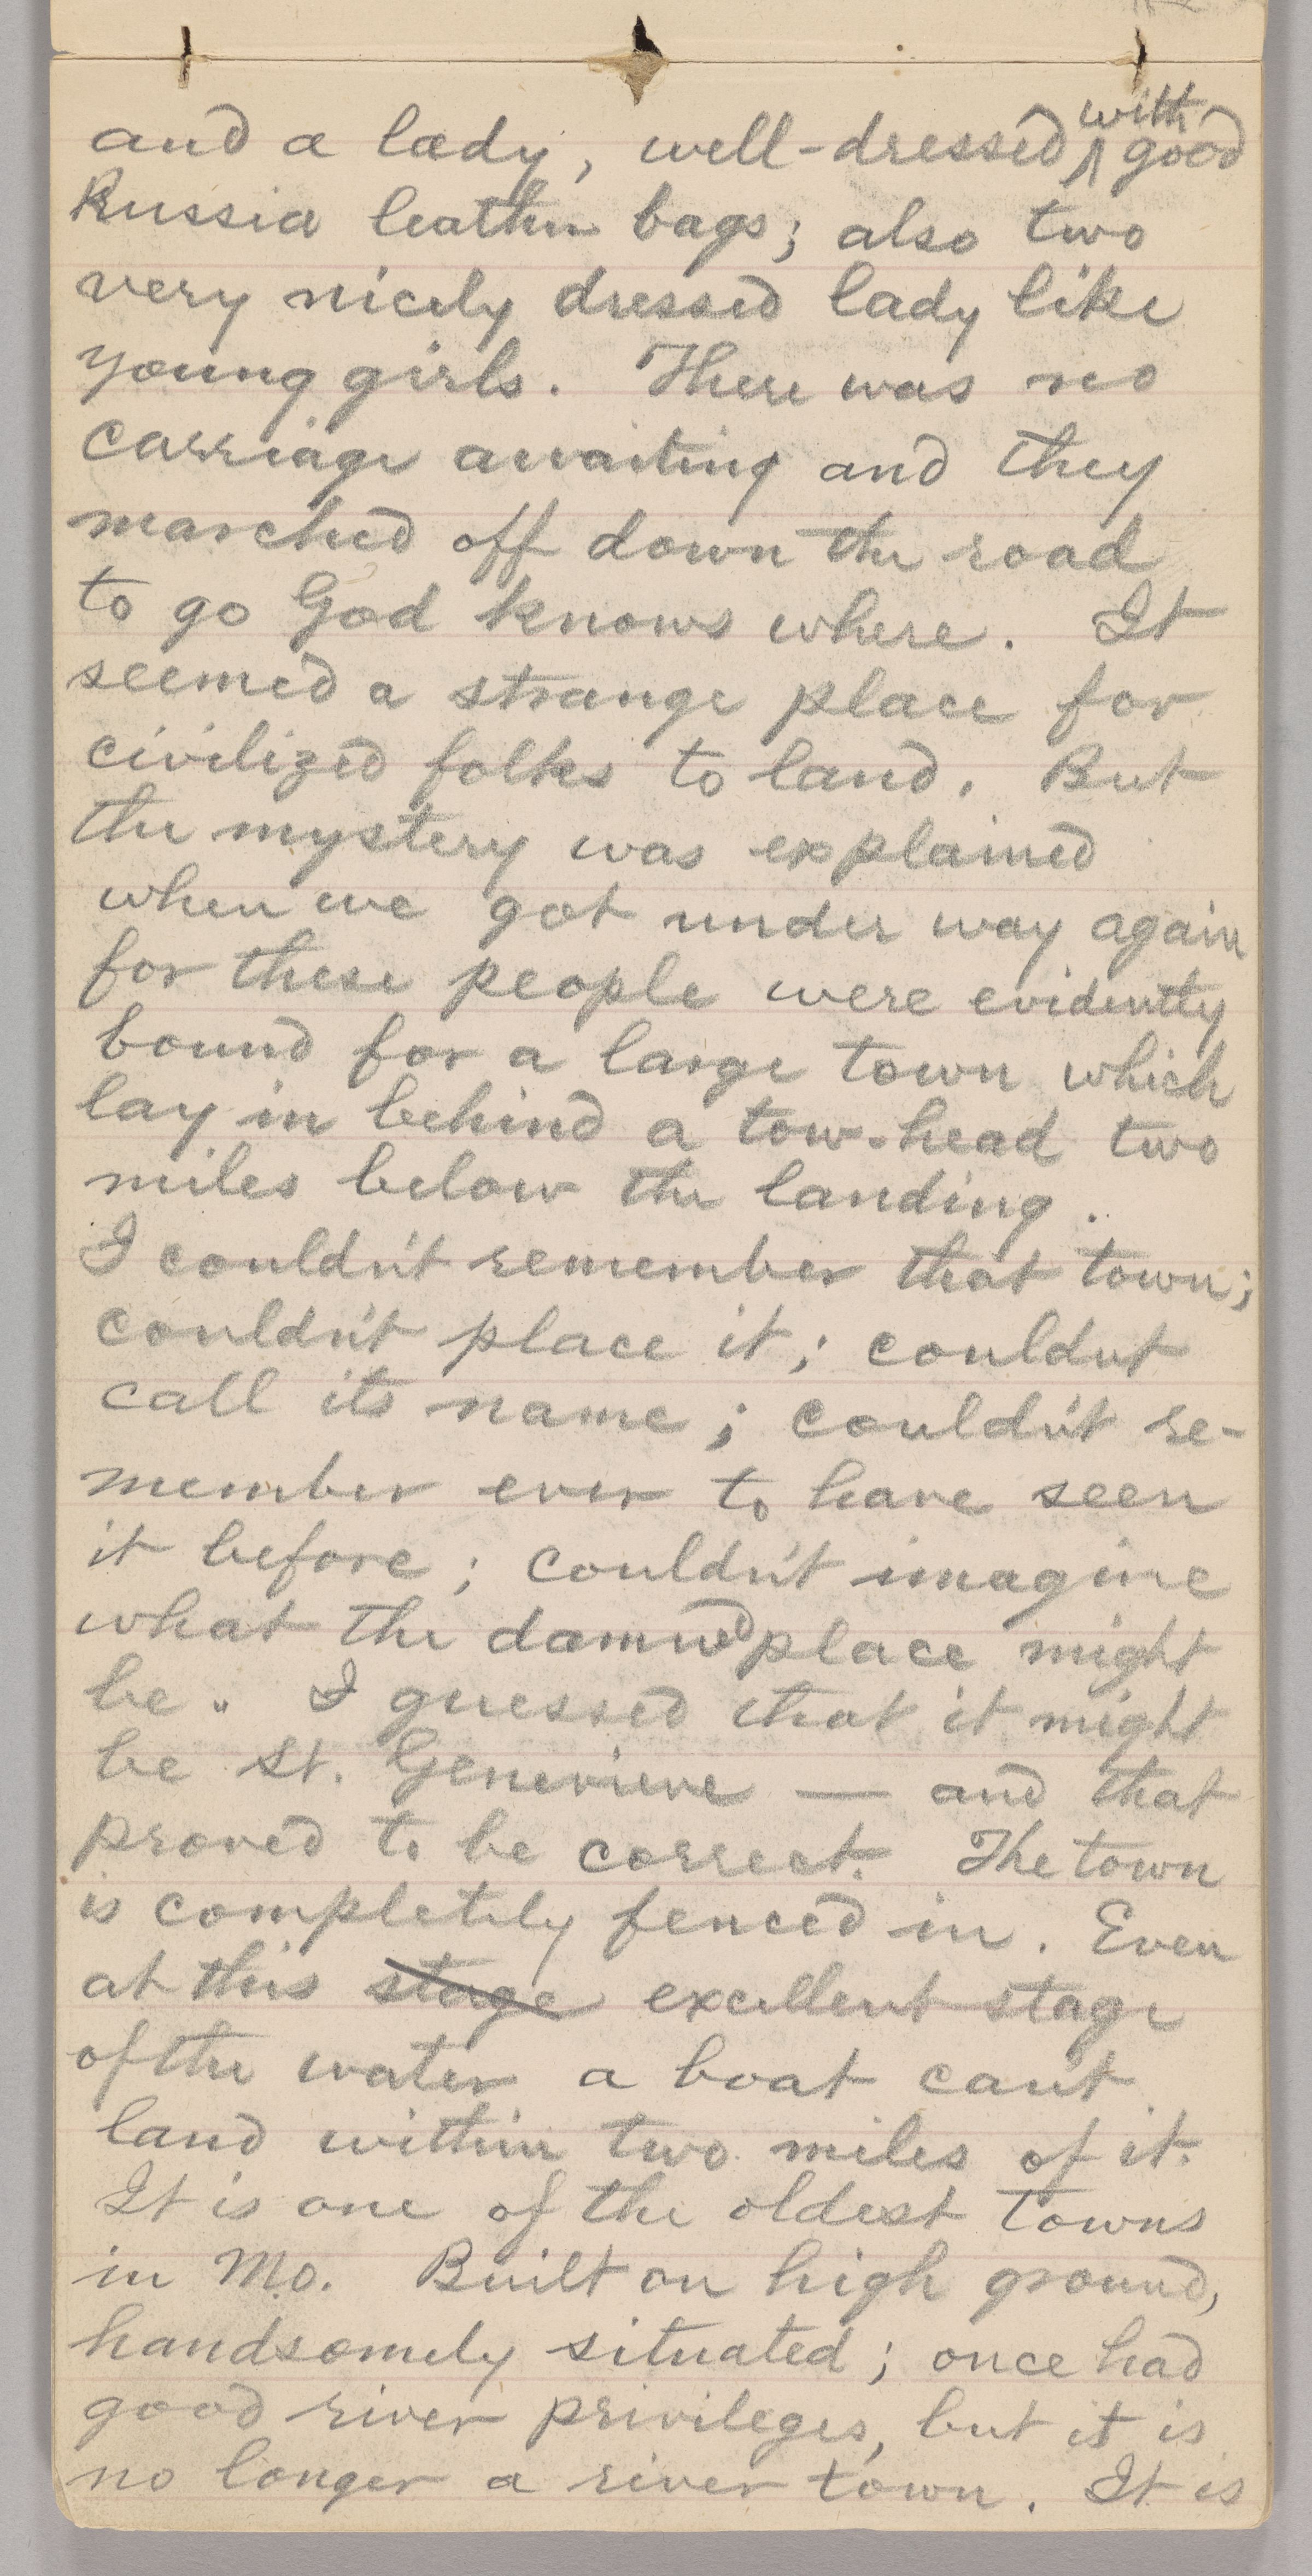 and a lady, well-dressed, with good
Russia leather bags; also two
very nicely dressed lady like
young girls. There was no
carriage awaiting and they
marched off down the road
to go God knows where. It
seemed a strange place for
civilized folks to land. But
the mystery was explained
when we got under way again
for these people were evidently
bound for a large town which
lay in behind a tow-head two
miles below the landing.
I couldn't remember that town;
couldn't place it; couldnt
call its name; couldn't re-
member ever to have seen
it before; couldn't imagine
what the damned place might
be. I guessed that it might
be St. Genevieve — and that
proved to be correct. The town
is completely fenced in. Even
at this stage excellent stage
of the water a boat can't
land within two miles of it.
It is one of the oldest towns
in Mo. Built on high ground,
handsomely situated; once had
good river privileges, but it is
no longer a river town. It is